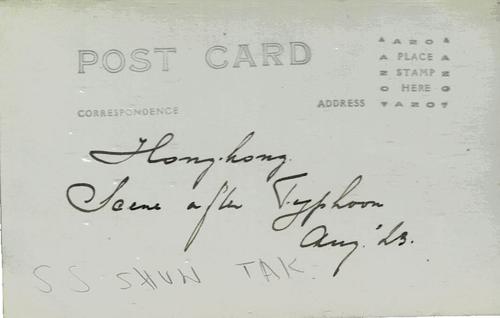 POST CARD
AZO
PLACE
STAMP
HERE
AZO
CORRESPONDENCE
ADDRESS
Hong-kong.
Scene after Typhoon
Aug. '23.
SS SHUN TAK.